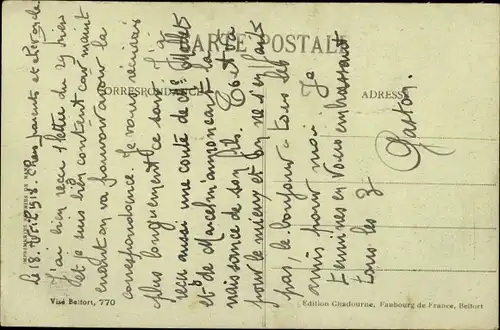 CARTE POSTALE
CORRESPONDANCE
ADRESSE
le 18. 1918. Chers parents et cher
J'ai bien recu lettre du 29 bien
et je suis bien content car maint
enant on va pouvoir avoir la
correspondance. Je vous écrirais
plus longuement ce soir. J'ai
recu aussi une carte de
et de Marcel m'annoncant la
naissance de son fils. Tout va
pour le mieux et l'on ne s'en fait
pas, le bonjour a tous les
amis pour moi. Je
termines en vous embrassant
tous les 3
Gaston.
Visé Belfort, 770
Edition Chadourne, Faubourg de France, Belfort
IMPRIMERIES REUNIES DE NANCY